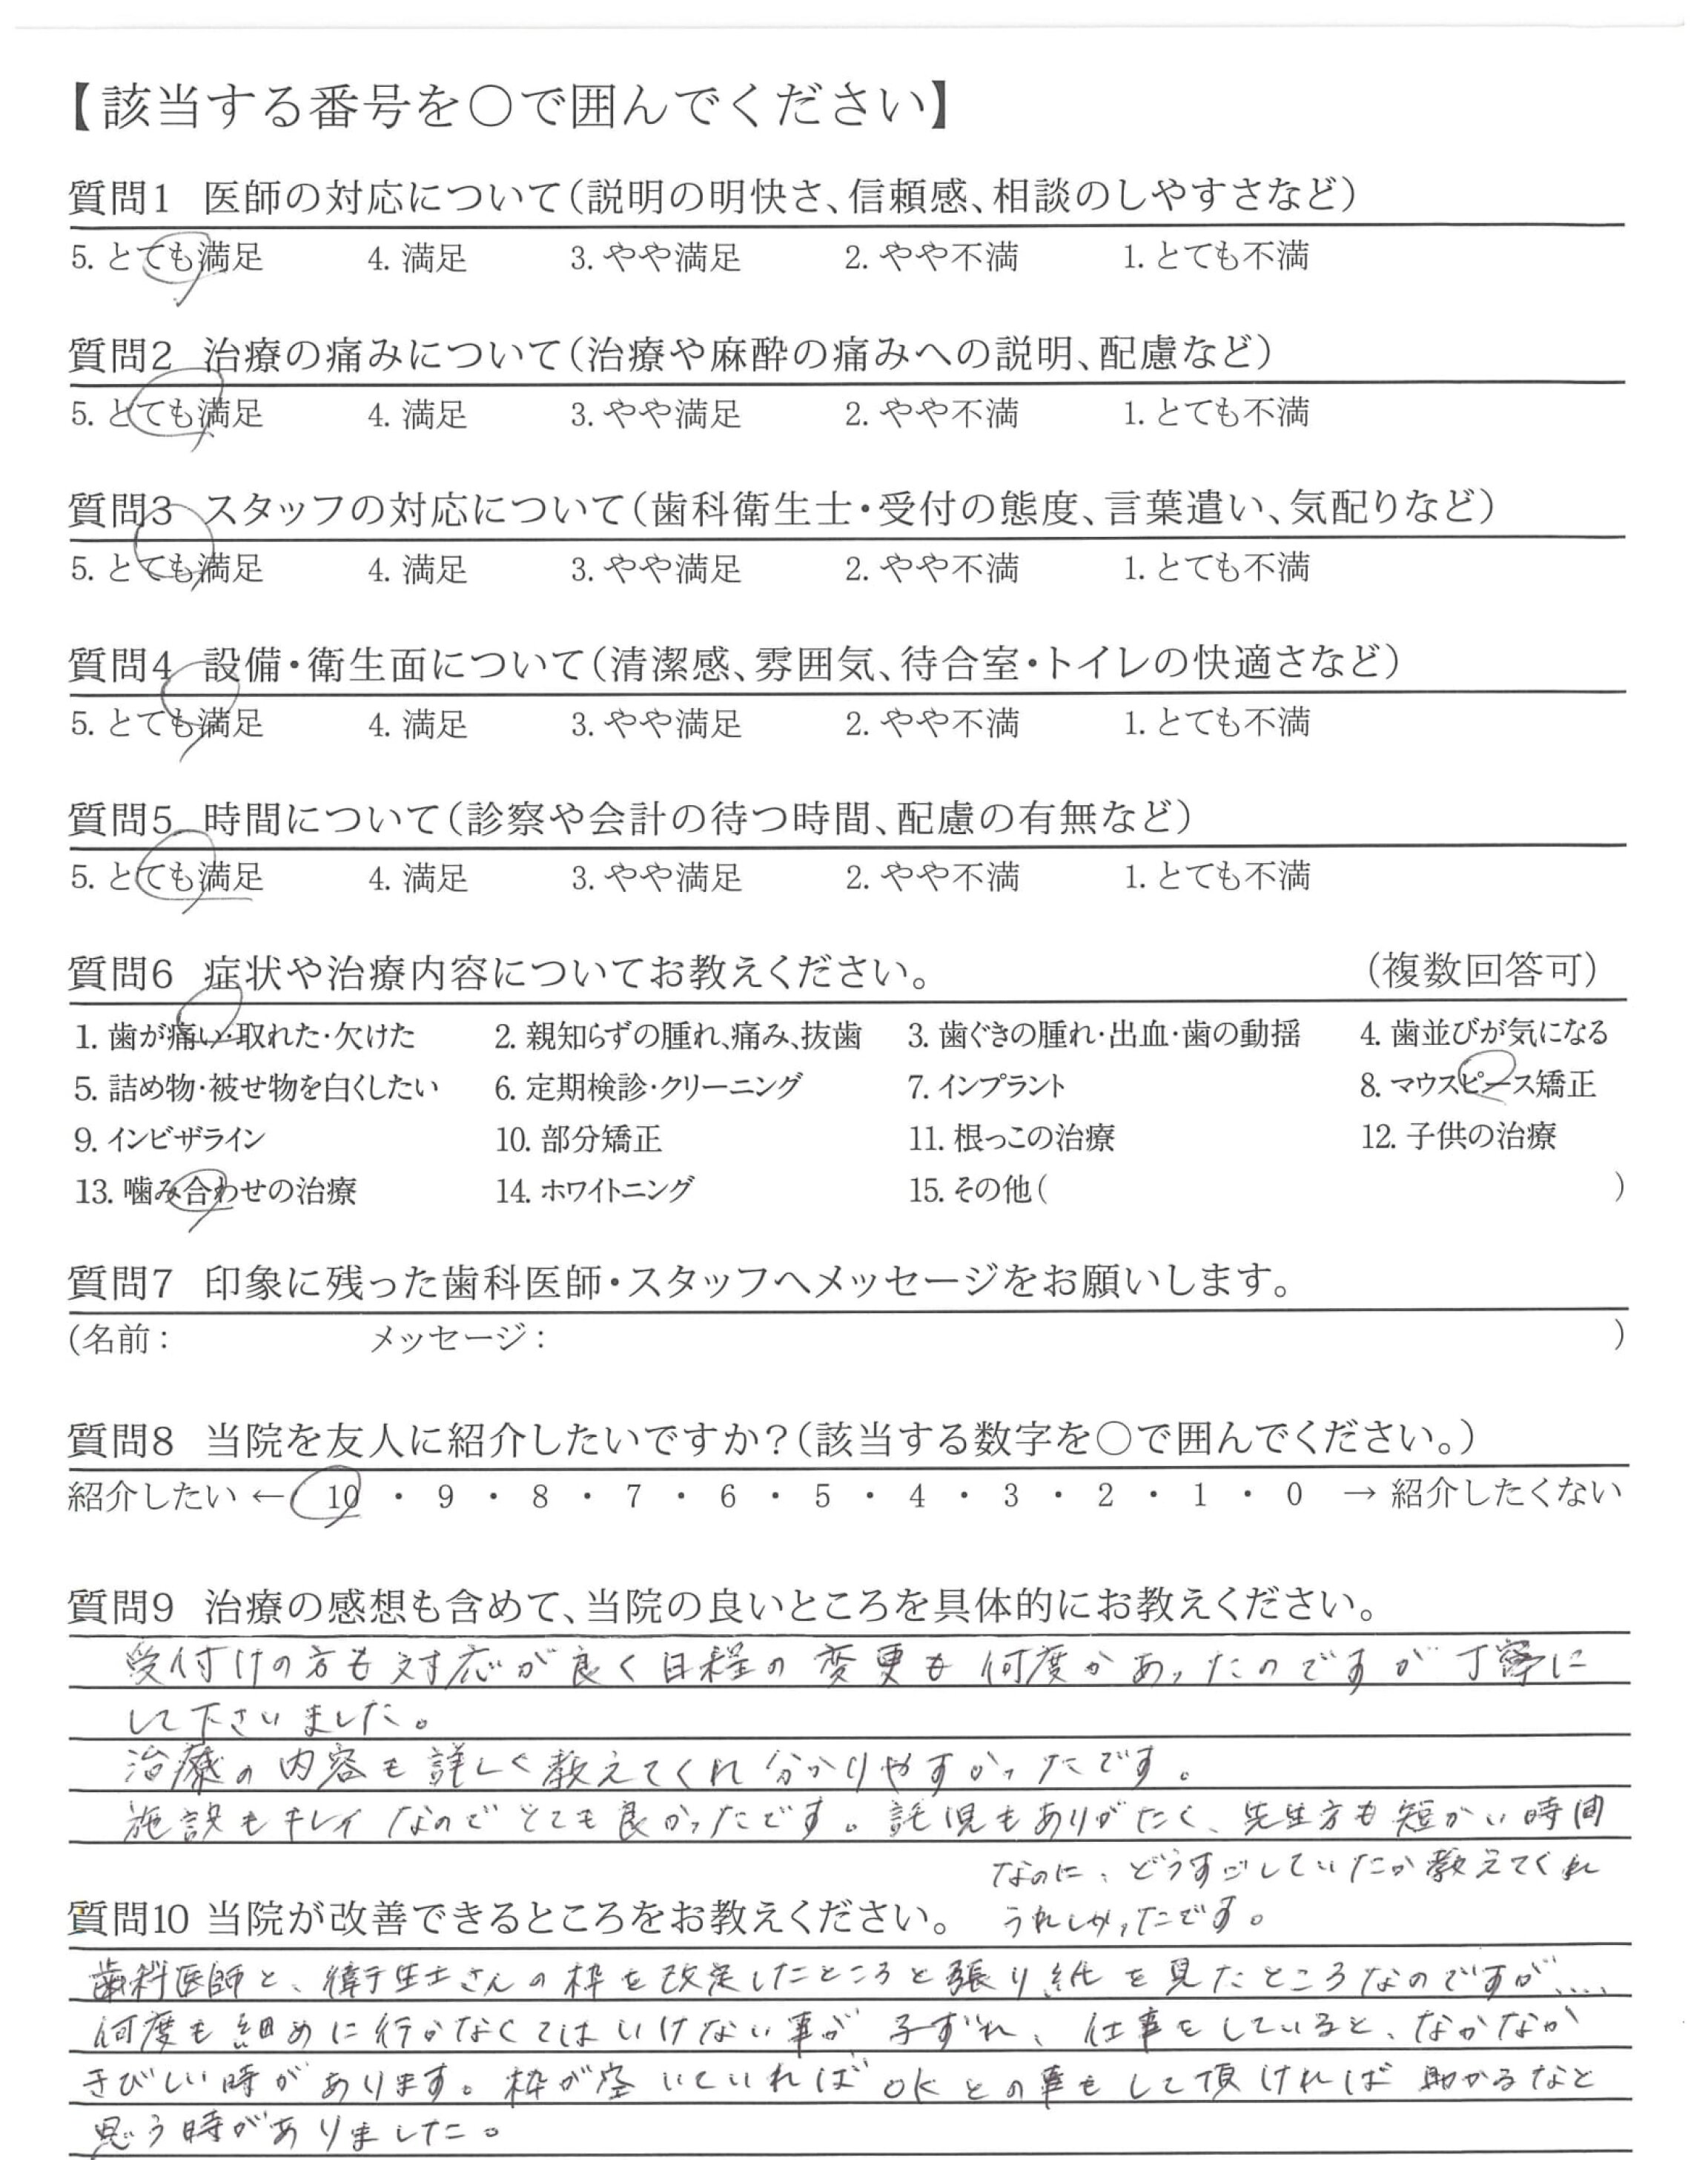 【該当する番号を〇で囲んでください】
質問1 医師の対応について(説明の明快さ、信頼感、相談のしやすさなど)
5. とても満足 4. 満足 3. やや満足 2. やや不満 1. とても不満
質問2 治療の痛みについて(治療や麻酔の痛みへの説明、配慮など)
5. とても満足 4. 満足 3. やや満足 2. やや不満 1. とても不満
質問3 スタッフの対応について(歯科衛生士・受付の態度、言葉遣い、気配りなど)
5. とても満足 4. 満足 3. やや満足 2. やや不満 1. とても不満
質問4 設備・衛生面について(清潔感、雰囲気、待合室・トイレの快適さなど)
5. とても満足 4. 満足 3. やや満足 2. やや不満 1. とても不満
質問5 時間について(診察や会計の待つ時間、配慮の有無など)
5. とても満足 4. 満足 3. やや満足 2. やや不満 1. とても不満
質問6 症状や治療内容についてお教えください。 (複数回答可)
1. 歯が痛い・取れた・欠けた 2. 親知らずの腫れ、痛み、抜歯 3. 歯ぐきの腫れ・出血・歯の動揺 4. 歯並びが気になる
5. 詰め物・被せ物を白くしたい 6. 定期検診・クリーニング 7. インプラント 8. マウスピース矯正
9. インビザライン 10. 部分矯正 11. 根っこの治療 12. 子供の治療
13. 噛み合わせの治療 14. ホワイトニング 15. その他( )
質問7 印象に残った歯科医師・スタッフへメッセージをお願いします。
(名前: メッセージ: )
質問8 当院を友人に紹介したいですか?(該当する数字を〇で囲んでください。)
紹介したい ← 10 ・ 9 ・ 8 ・ 7 ・ 6 ・ 5 ・ 4 ・ 3 ・ 2 ・ 1 ・ 0 → 紹介したくない
質問9 治療の感想も含めて、当院の良いところを具体的にお教えください。
受付けの方も対応が良く日程の変更も何度かあったのですが丁寧に
して下さいました。
治療の内容も詳しく教えてくれ分かりやすかったです。
施設もキレイなのでとても良かったです。託児もありがたく、先生方も短かい時間
なのに、どうすごしていたか教えてくれ
うれしかったです。
質問10 当院が改善できるところをお教えください。
歯科医師と、衛生士さんの枠を改定したところと張り紙を見たところなのですが....
何度も細めに行かなくてはいけない事が子ずれ、仕事をしていると、なかなか
きびしい時があります。枠が空いていればOKとの事もして頂ければ助かるなと
思う時がありました。